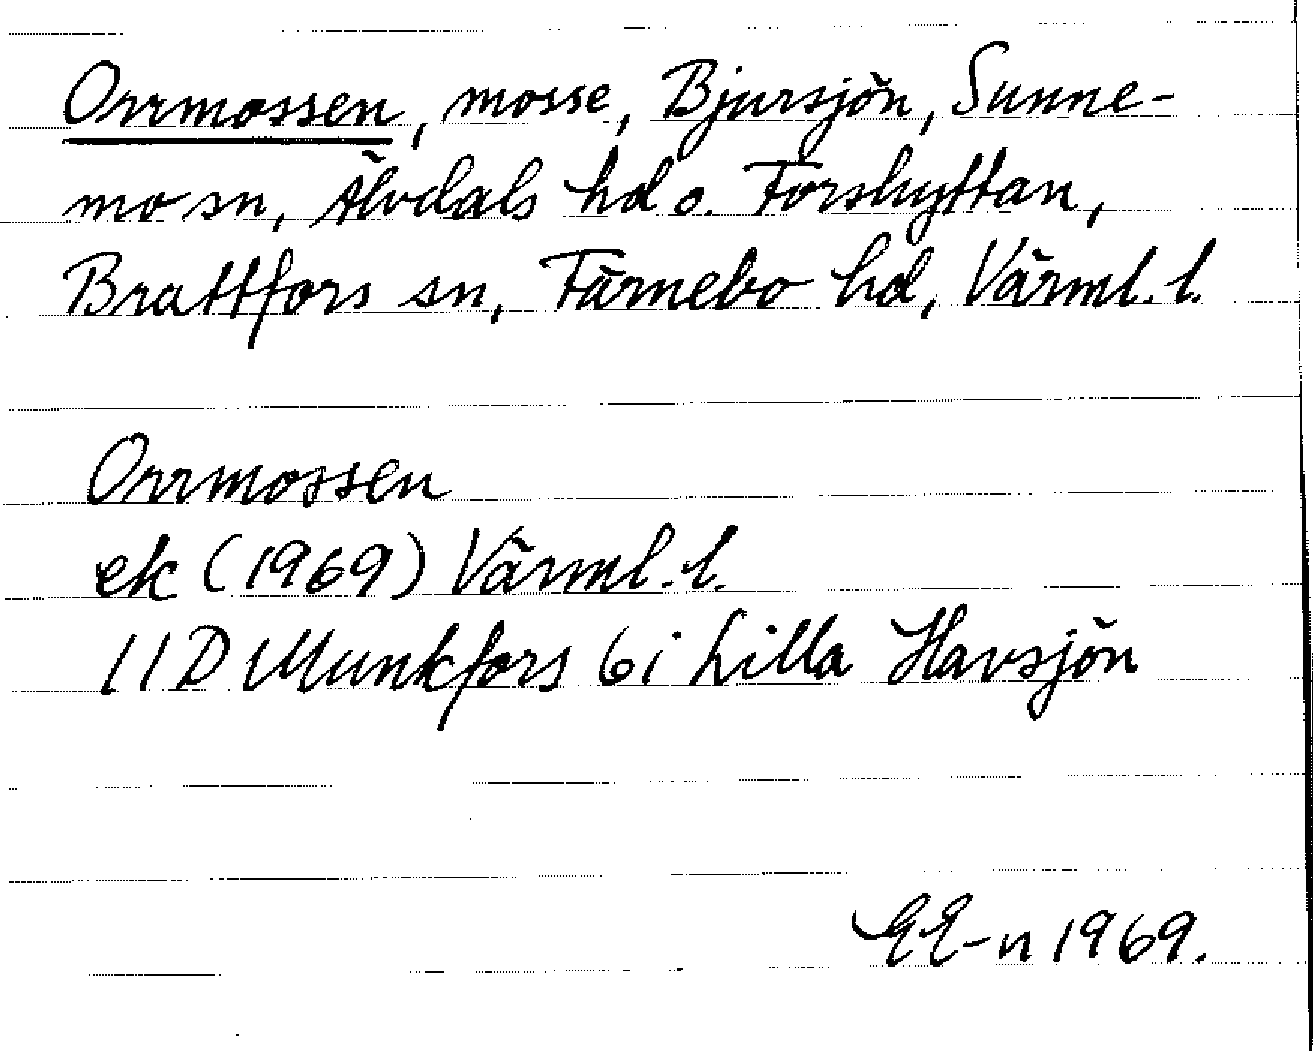 Orrmossen, mosse, Bjursjön, Sunne-
mo sn, Älvdals hd o. Forshyttan,
Brattfors sn, Färnebo hd, Värml. l.
Orrmossen
ek (1969) Värml. l.
11D Munkfors 6i Lilla Havsjön
EE-n 1969.